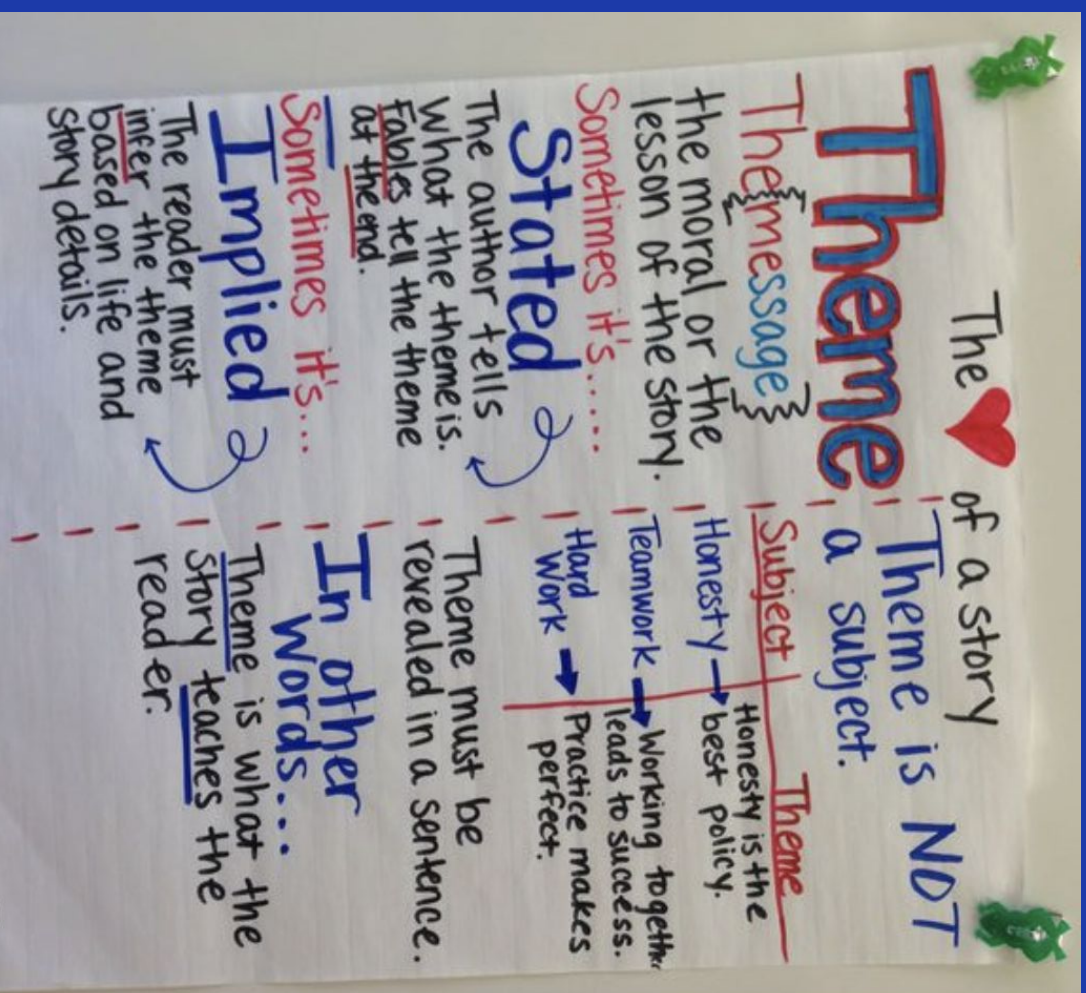 The ♥ of a story
Theme
The message
the moral or the
lesson of the story.
Sometimes it's.....
Stated
The author tells
What the theme is.
Fables tell the theme
at the end.
Sometimes it's...
Implied
The reader must
infer the theme
based on life and
story details.
Theme is NOT
a subject.
Subject Theme
Honesty → Honesty is the
best policy.
Teamwork → Working together
leads to success.
Hard
Work → Practice makes
perfect.
Theme must be
revealed in a sentence.
In other
words....
Theme is what the
story teaches the
reader.